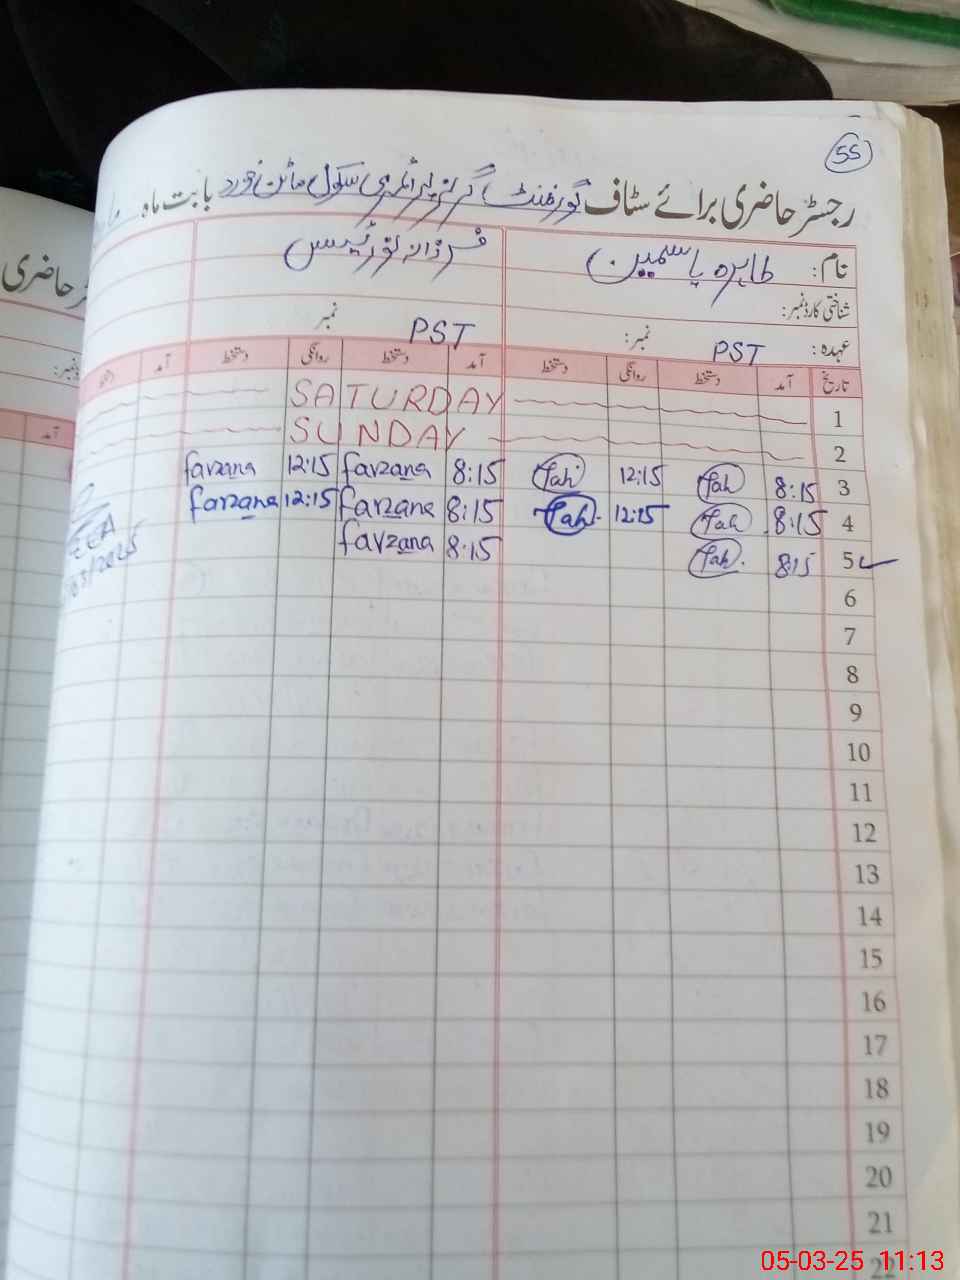 55
رجسٹر حاضری برائے سٹاف گورنمنٹ گرلز پرائمری سکول خورد بابت ماہ
نام: طاہرہ یاسمین فرزانہ نورئیس
شناختی کارڈ نمبر:
عہدہ: PST نمبر: PST نمبر
تاریخ آمد دستخط روانگی دستخط آمد دستخط روانگی دستخط آمد
1 SATURDAY
2 SUNDAY
3 8:15 Tah 12:15 Tah 8:15 farzana 12:15 farzana
4 8:15 Tah 12:15 Tah 8:15 farzana 12:15 farzana
5 8:15 Tah 8:15 farzana
6
7
8
9
10
11
12
13
14
15
16
17
18
19
20
21
22
حاضری
نمبر:
آمد
05-03-25 11:13